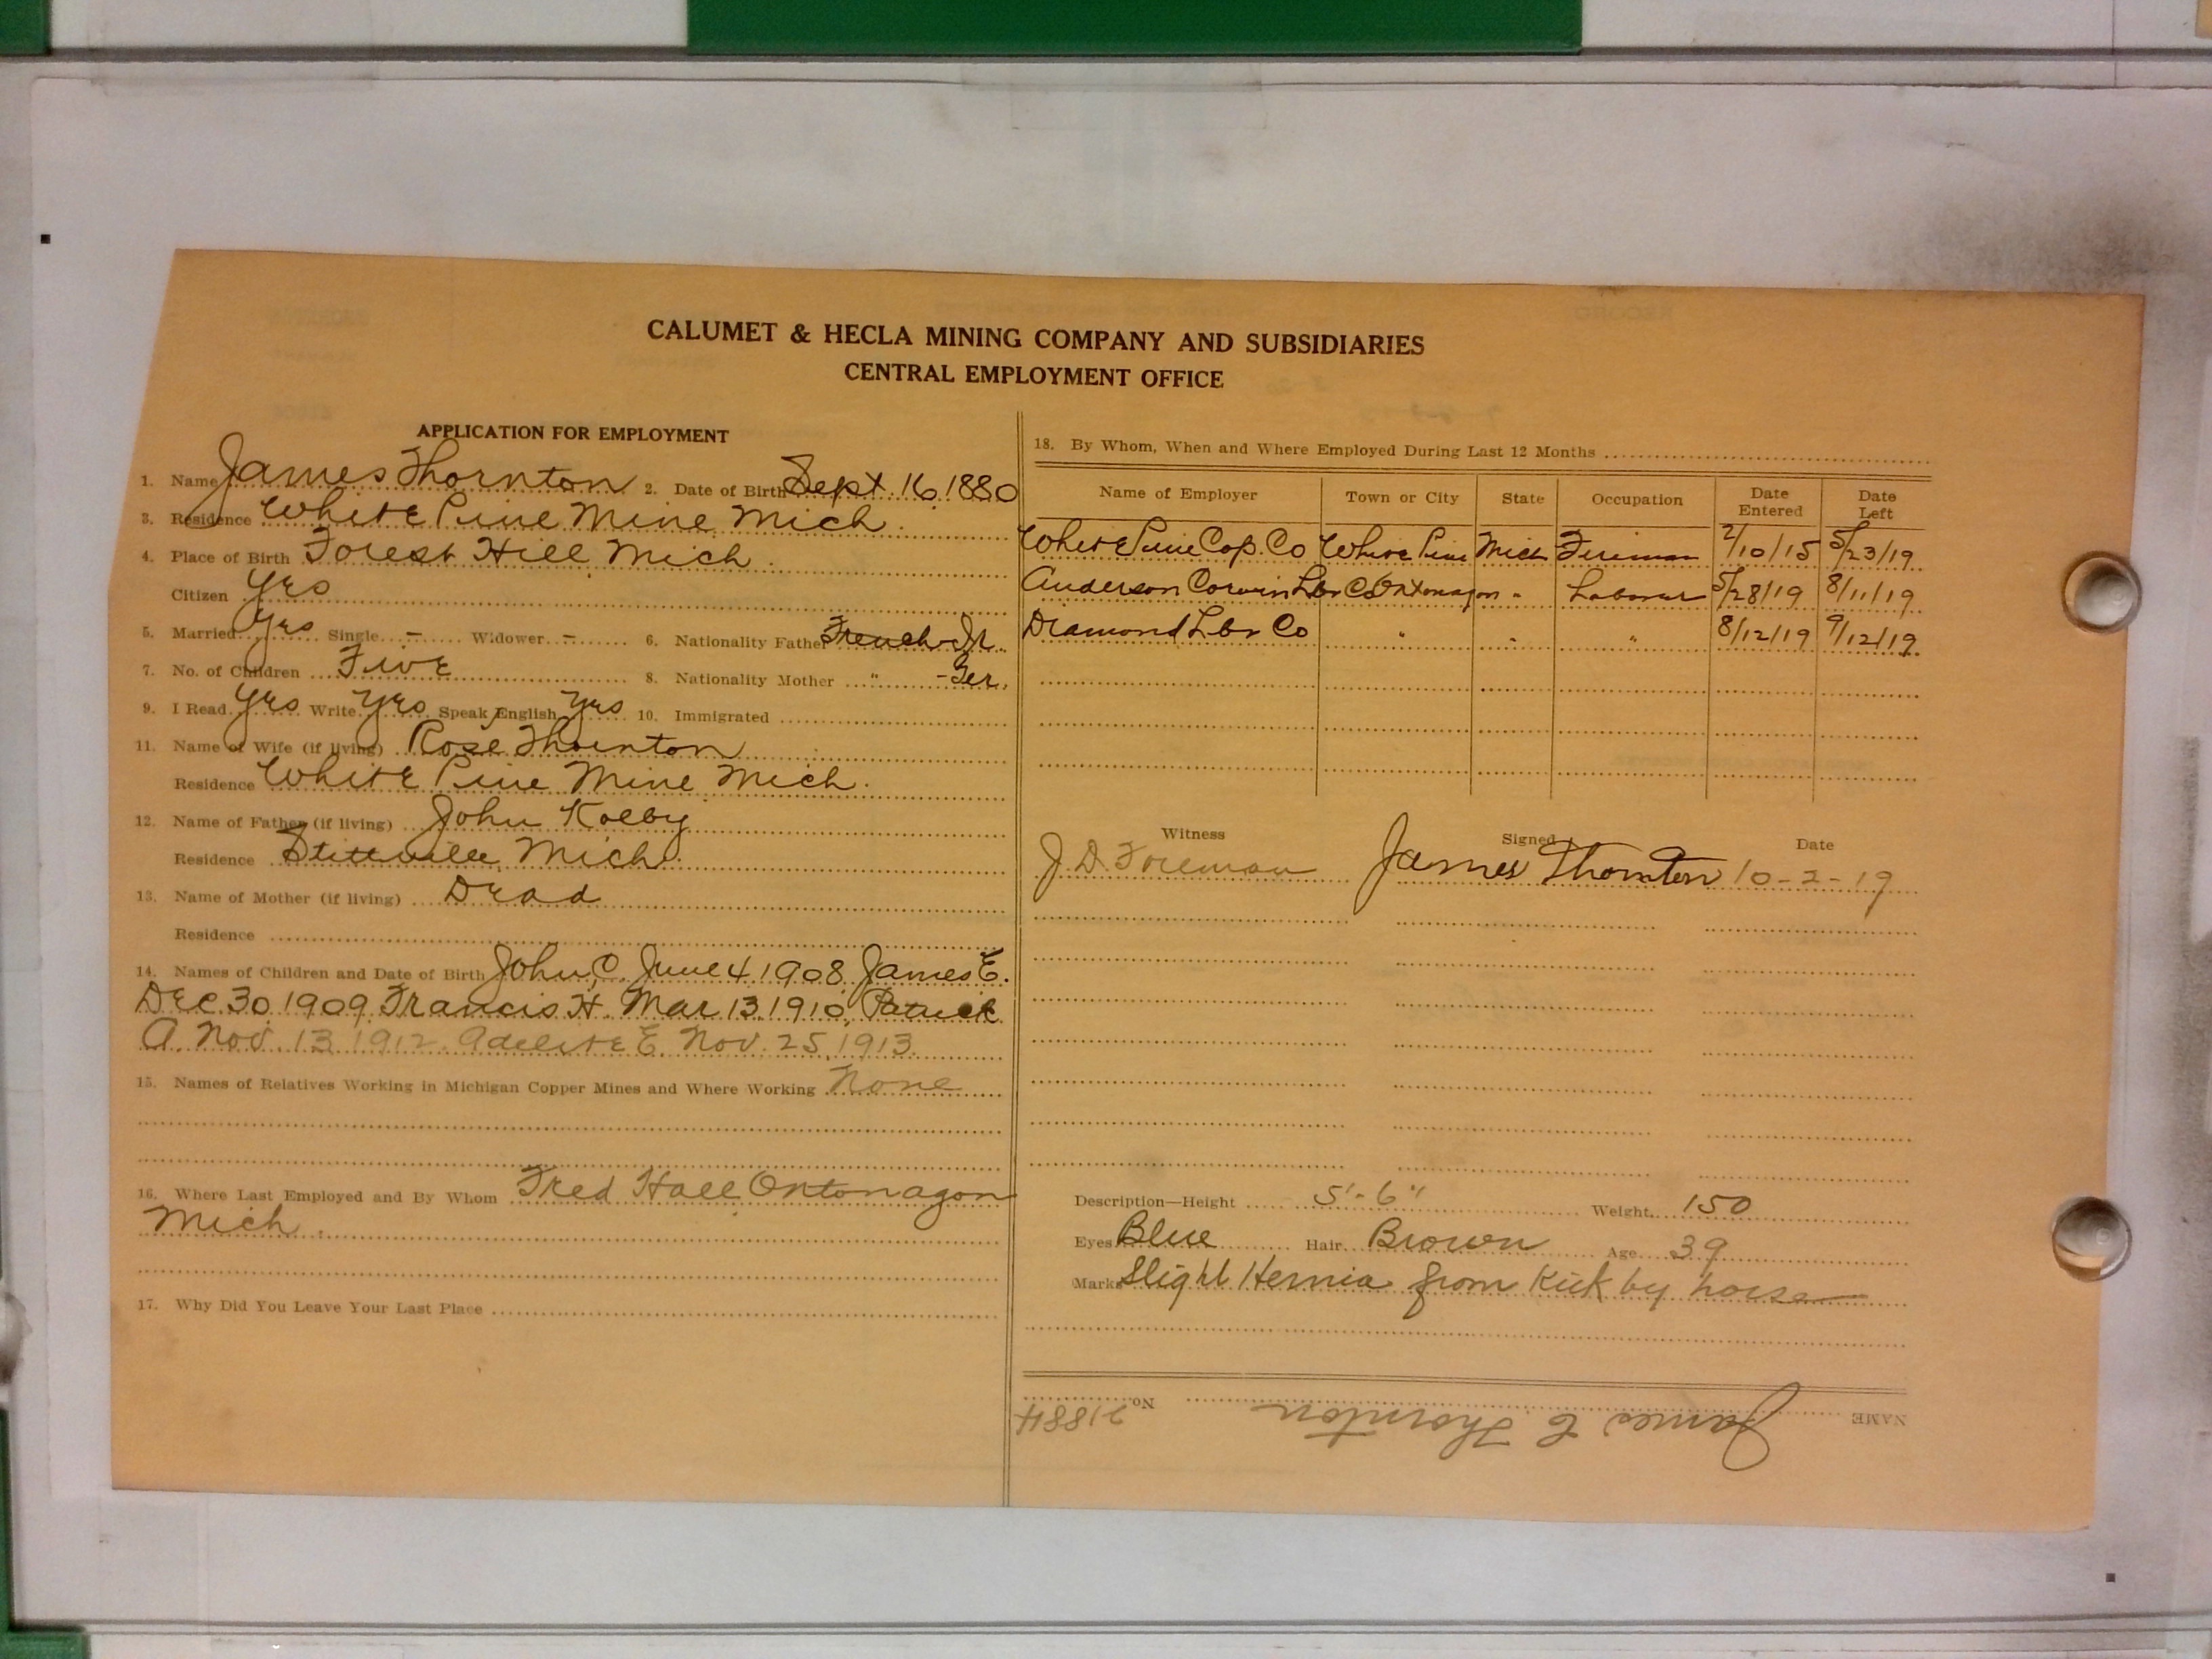 CALUMET & HECLA MINING COMPANY AND SUBSIDIARIES
CENTRAL EMPLOYMENT OFFICE
APPLICATION FOR EMPLOYMENT
1. Name James Thornton 2. Date of Birth Sept. 16 1880
3. Residence White Pine Mine Mich.
4. Place of Birth Forest Hill Mich.
Citizen Yes
5. Married Yes Single - Widower - 6. Nationality Father French-Ir.
7. No. of Children Five 8. Nationality Mother " -Ger.
9. I Read Yes Write Yes Speak English Yes 10. Immigrated
11. Name of Wife (if living) Rose Thornton
Residence White Pine Mine Mich.
12. Name of Father (if living) John Kolby
Residence Stittville Mich.
13. Name of Mother (if living) Dead
Residence
14. Names of Children and Date of Birth John C. June 4 1908 James E.
Dec 30 1909 Francis H. Mar 13 1910, Patrick
A. Nov. 13 1912 Adelite E. Nov. 25, 1913
15. Names of Relatives Working in Michigan Copper Mines and Where Working None
16. Where Last Employed and By Whom Fred Hall Ontonagon
Mich.
17. Why Did You Leave Your Last Place
18. By Whom, When and Where Employed During Last 12 Months
Name of Employer Town or City State Occupation Date Entered Date Left
White Pine Cop. Co White Pine Mich Fireman 2/10/15 5/23/19
Anderson Corwin Lbr Co Ontonagon " Laborer 5/28/19 8/11/19
Diamond Lbr Co " " " 8/12/19 9/12/19
Witness Signed Date
J. D. Foreman James Thornton 10-2-19
Description—Height 5'-6" Weight 150
Eyes Blue Hair Brown Age 39
Marks Slight Hernia from Kick by horse
NAME James E Thornton No. 21884